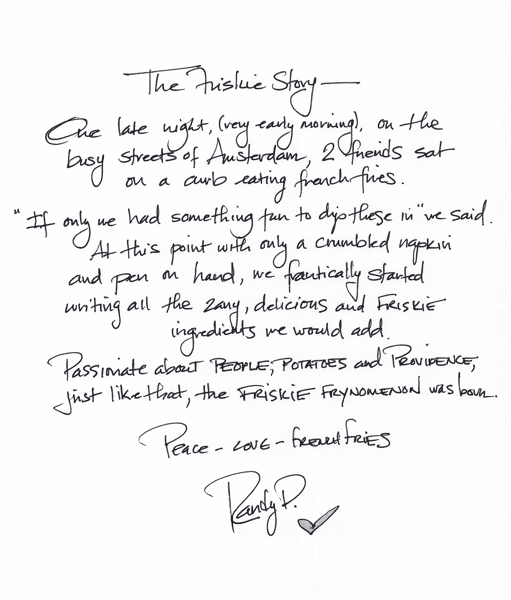 The Friskie Story —
One late night, (very early morning), on the
busy streets of Amsterdam, 2 friends sat
on a curb eating french fries.
"If only we had something fun to dip these in" we said.
At this point with only a crumbled napkin
and pen on hand, we frantically started
writing all the zany, delicious and FRISKIE
ingredients we would add.
Passionate about PEOPLE, POTATOES and PROVIDENCE,
just like that, the FRISKIE FRYNOMENON was born.
Peace - LOVE - French FRIES
Randy P.